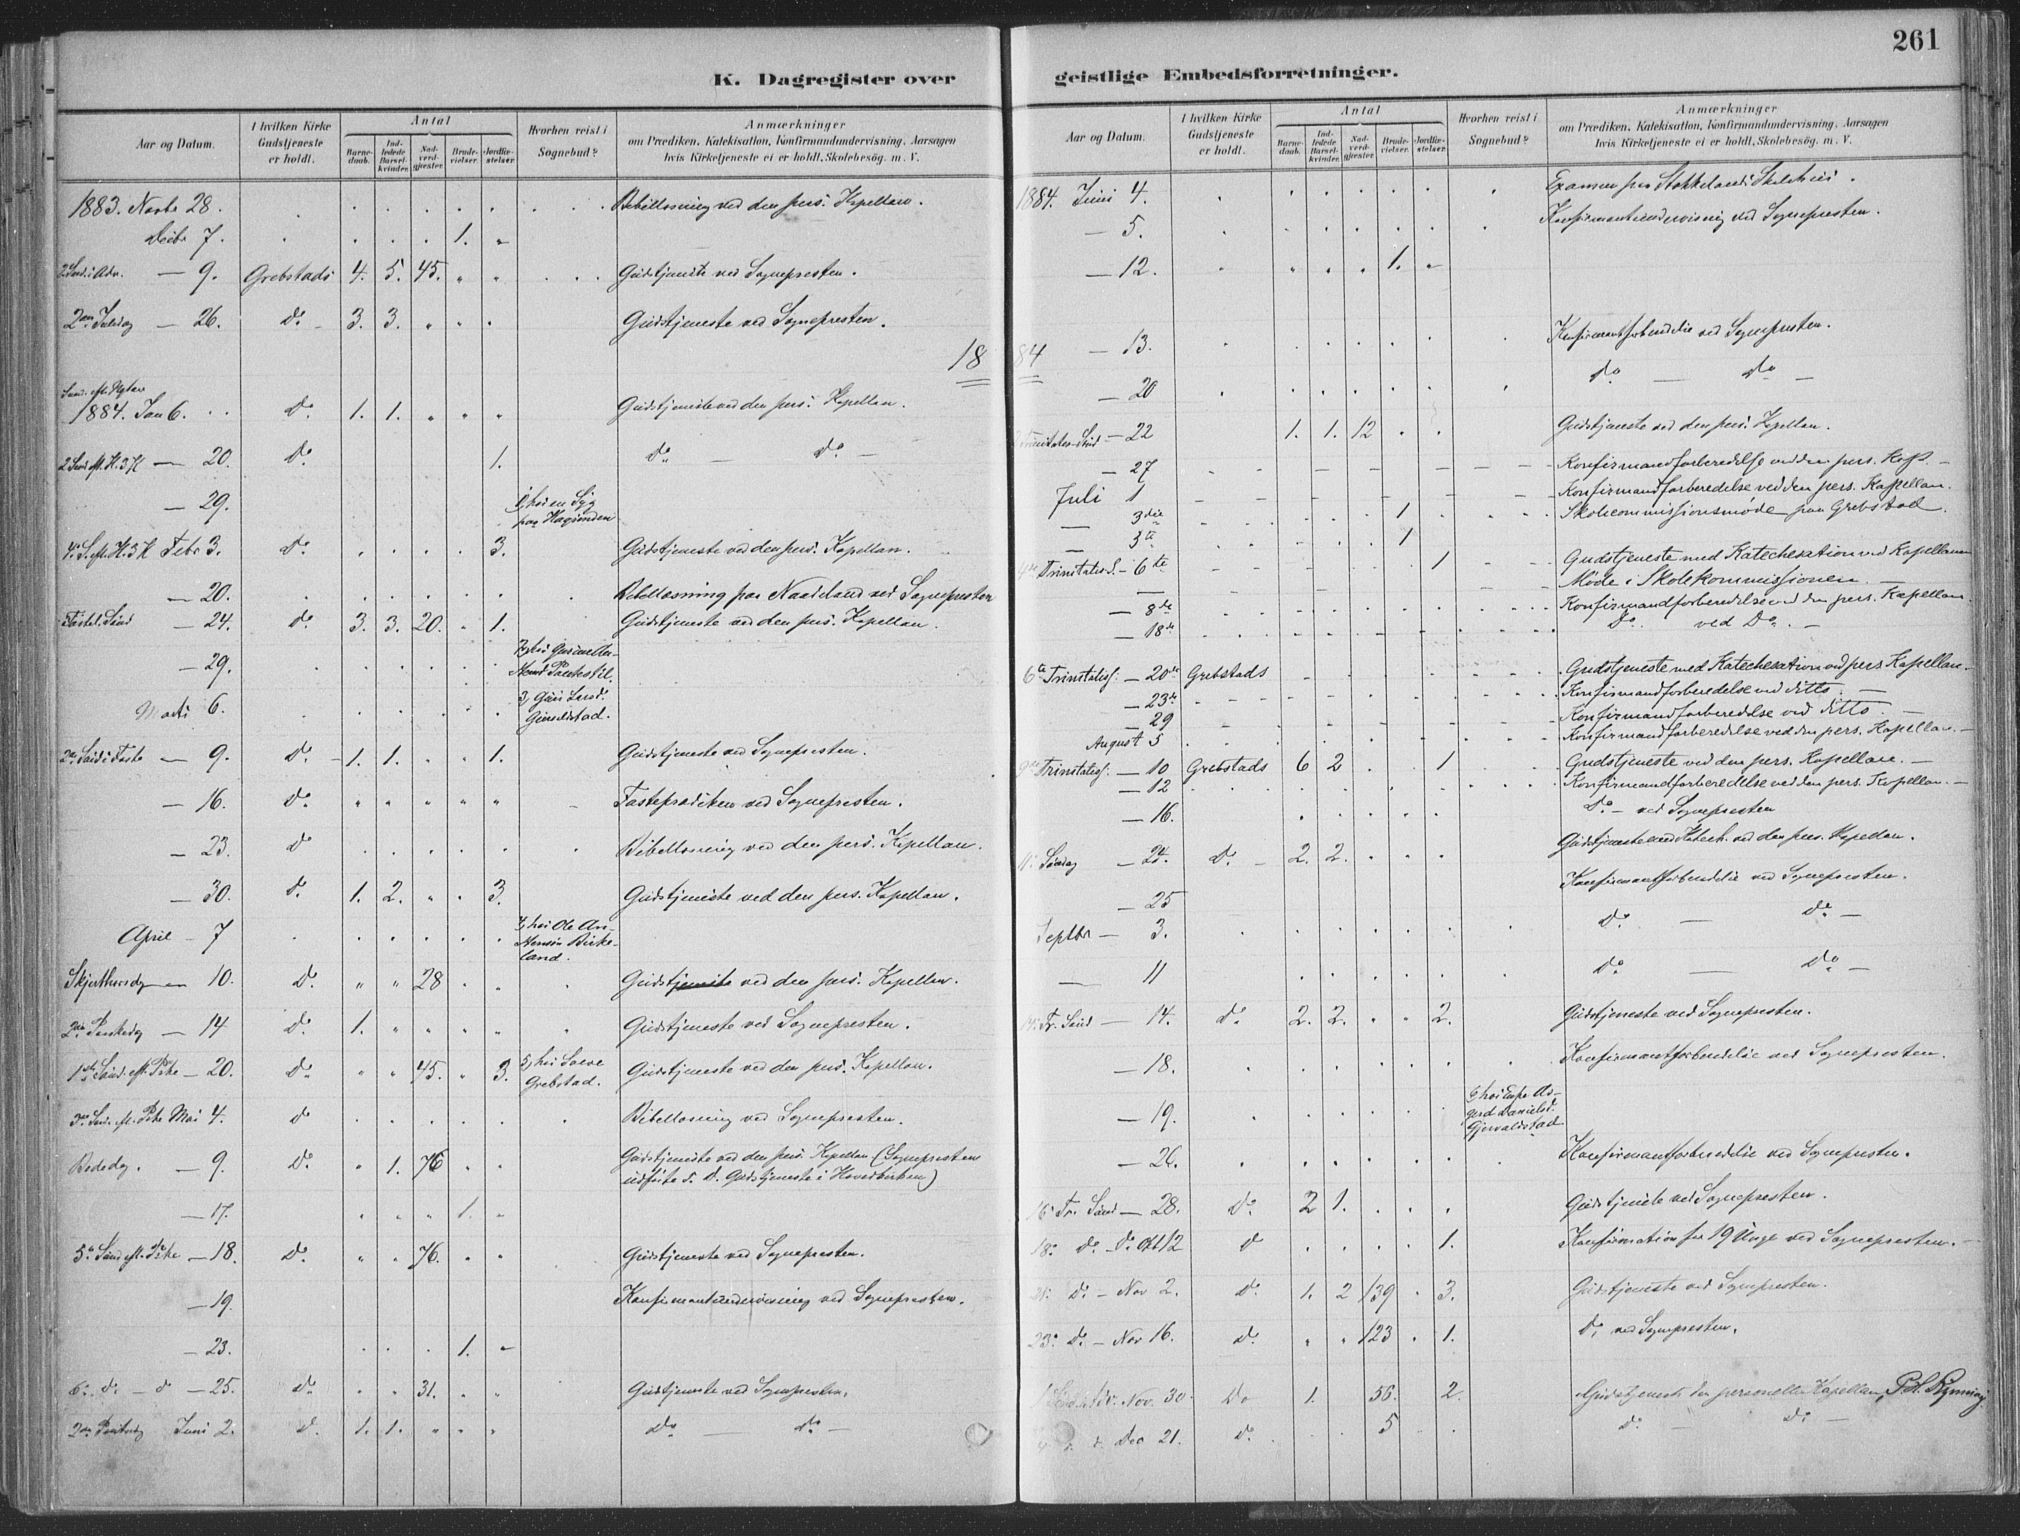 261
K. Dagregister over geistlige Embedsforretninger.
Aar og Datum. I hvilken Kirke Gudstjeneste er holdt. Antal Barnedaab. Indledede Barselkvinder. Nadverdgjester. Brudevielser. Jordfæstelser. Hvorhen reist i Sognebud? Anmærkninger om Prædiken, Katekisation, Konfirmandundervisning, Aarsagen hvis Kirketjeneste ei er holdt, Skolebesøg. m. V.
1883. Novbr 28. Bibellæsning ved den pers. Kapellan.
Decbr 7. 1.
2 Sønd. i Adv. — 9. Grebstads 4. 5. 45. Gudstjeneste ved Sognepresten.
2den Juledag — 26. do 3. 3. Gudstjeneste ved Sognepresten.
1884
Sønd. eft. Nytaar
1884. Jan 6. do 1. 1. Gudstjeneste ved den pers. Kapellan.
2 Sønd. eft. H. 3 K — 20. do 1. do — do —
— 29. 1, hos en Syg paa
4de S. eft. H. 3 K Febr 3. do 3. Gudstjeneste ved den pers. Kapellan.
— 20. Bibellæsning paa ved Sognepresten
Fastel. Sønd — 24. do 3. 3. 20. 1. Gudstjeneste ved den pers. Kapellan.
— 29.
Marts 6.
2den Sønd. i Faste — 9. do 1. 1. 1. Gudstjeneste ved Sognepresten.
— 16. do Fasteprædiken ved Sognepresten.
— 23. do Bibellæsning ved den pers. Kapellan.
— 30. do 1. 2. 3. Gudstjeneste ved den pers. Kapellan.
April — 7 hos Ole Andersen Birkeland.
Skjærthorsdag — 10. do 28 Gudstjeneste ved den pers. Kapellan.
2den Paaskedag — 14 do 1. Gudstjeneste ved Sognepresten.
1ste Sønd. eft. Paaske — 20. do 45. 3. 5, hos Grebstad. Gudstjeneste ved den pers. Kapellan.
3die Sønd. eft. Paaske Mai 4. do Bibellæsning ved Sognepresten.
Bededag. — 9. do 1. 76 Gudstjeneste ved den pers. Kapellan (Sognepresten
udførte s. D. Gudstjeneste i Hovedkirken)
— 17. 1.
5te Sønd. eft. Paaske — 18. do 76. Gudstjeneste ved Sognepresten.
— 19. Konfirmantundervisning ved Sognepresten.
— 23. 1.
6te do — do — 25. do 31. Gudstjeneste ved Sognepresten.
2den Juni 2. do 1. 1. do — do —
Aar og Datum. I hvilken Kirke Gudstjeneste er holdt. Antal Barnedaab. Indledede Barselkvinder. Nadverdgjester. Brudevielser. Jordfæstelser. Hvorhen reist i Sognebud? Anmærkninger om Prædiken, Katekisation, Konfirmandundervisning, Aarsagen hvis Kirketjeneste ei er holdt, Skolebesøg. m. V.
1884. Juni 4. Examen paa Stokkelands Skolehus.
— 5. Konfirmantundervisning ved Sognepresten.
— 12. 1.
— 13. Konfirmantforberedelse ved Sognepresten.
— 20 do — do —
Trinitatis Sønd — 22 1. 1. 12 Gudstjeneste ved den pers. Kapellan.
— 27 Konfirmandforberedelse ved den pers. Kap. —
Juli 1 Konfirmandforberedelse ved den pers. Kapellan.
— 3die 1 Skolecommissionsmøde paa Grebstad.
— 3die 1
4de Trinitatis S. — 6te 1 Gudstjeneste med Katechesation ved Kapellanen
— Møde i Skolekommissionen. —
— 8de Konfirmandforberedelse ved den pers. Kapellan.
— 18de Do. ved Do. —
6te Trinitatis S. — 20de Grebstads Gudstjeneste med Katechesation ved pers. Kapellan.
— 23de Konfirmandforberedelse ved ditto. —
— 29 Konfirmandforberedelse ved ditto. —
August 5 Konfirmandforberedelse ved den pers. Kapellan. —
9de Trinitatis S. — 10 Grebstads 6 2 1 Gudstjeneste ved den pers. Kapellan. —
— 12 Konfirmandforberedelse ved den pers. Kapellan. —
— 16. Do — ved Sognepresten
11. Søndag — 24. Do — 2. 2. Gudstjeneste med Katech. ved den pers. Kapellan.
— 25 Konfirmantforberedelse ved Sognepresten.
Septbr — 3. Do — Do —
— 11 Do — Do —
14. Tr. Sønd — 14. Do 2. 2. 2. Gudstjeneste ved Sognepresten.
— 18. Konfirmantforberedelse ved Sognepresten.
— 19. hos Danielsd. Gjervaldstad
— 26. Konfirmantforberedelse ved Sognepresten.
16. Tr. Sønd — 28. Do 2 1. Gudstjeneste ved Sognepresten.
18. do — do Okt 12 do 1. Konfirmation for 19 Unge ved Sognepresten. —
21. do — Nov 2. do 1. 2 139 3. Gudstjeneste ved Sognepresten.
23. do — Nov 16. do 123 1. do ved Sognepresten.
1 Nov. 30. Do 1. 56. 2. Gudstjeneste den personelle Kapellan,
Dec 21. do 5 do do —